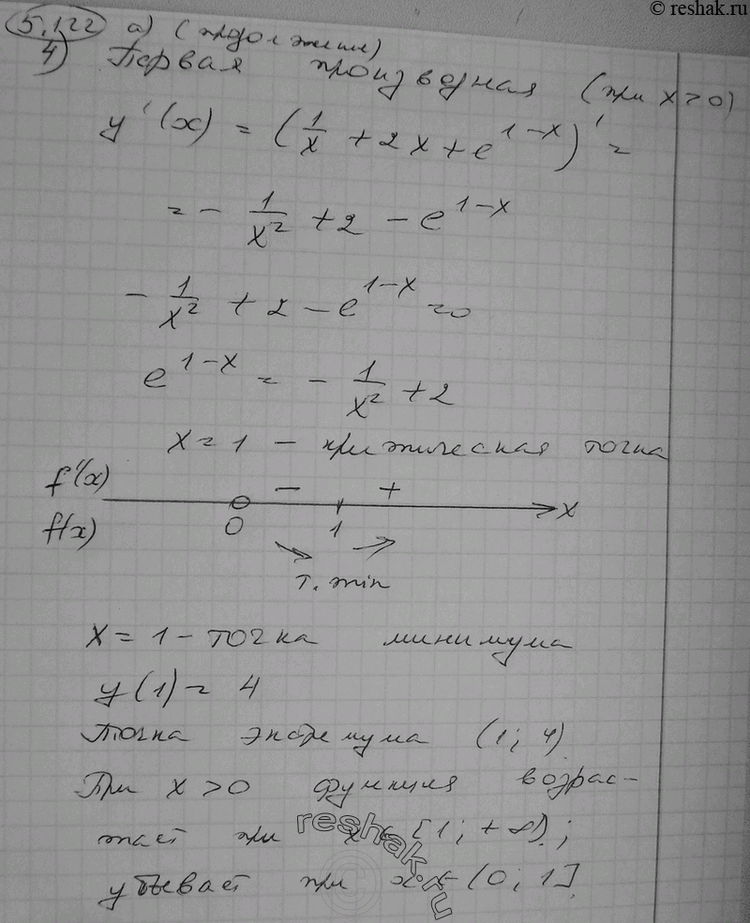 © reshak.ru
5.122 а) (продолжение)
4) Первая производная (при x > 0)
y'(x) = (1/x + 2x + e^(1-x))' =
= - 1/x² + 2 - e^(1-x)
- 1/x² + 2 - e^(1-x) = 0
e^(1-x) = - 1/x² + 2
x = 1 - критическая точка
f'(x) - +
0 1 x
f(x) ↘ ↗
т. min
x = 1 - точка минимума
y(1) = 4
Точка экстремума (1; 4)
При x > 0 функция возрас-
тает при x ∈ [1; +∞);
убывает при x ∈ (0; 1]
reshak.ru